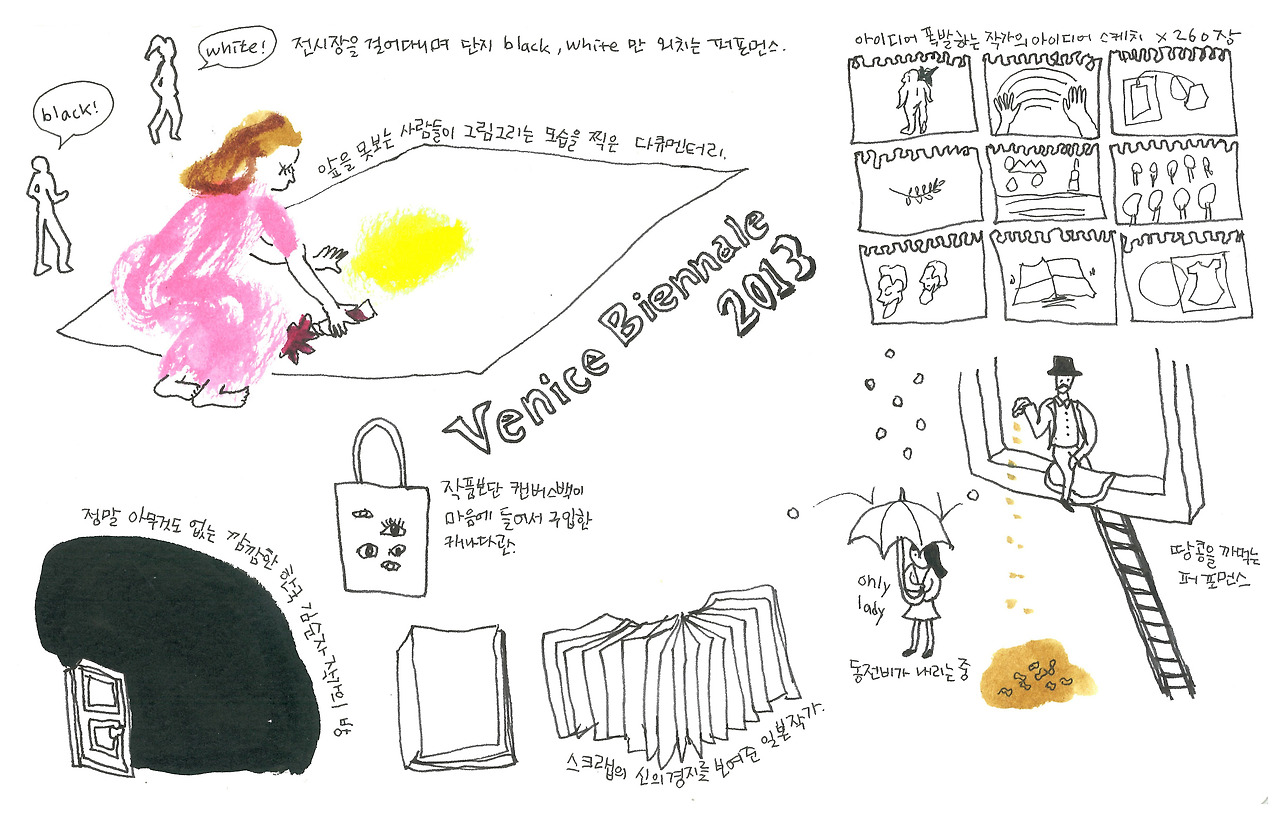 white!
전시장을 걸어다니며 단지 black, white 만 외치는 퍼포먼스.
black!
앞을 못보는 사람들이 그림그리는 모습을 찍은 다큐멘터리.
아이디어 폭발하는 작가의 아이디어 스케치 × 260장
Venice Biennale
2013
작품보단 캔버스백이
마음에 들어서 구입한
캐나다관.
정말 아무것도 없는 깜깜한 한국 김수자 작가의 방
스크랩의 신의경지를 보여준 일본작가.
only
lady
동전비가 내리는 중
땅콩을 까먹는
퍼포먼스